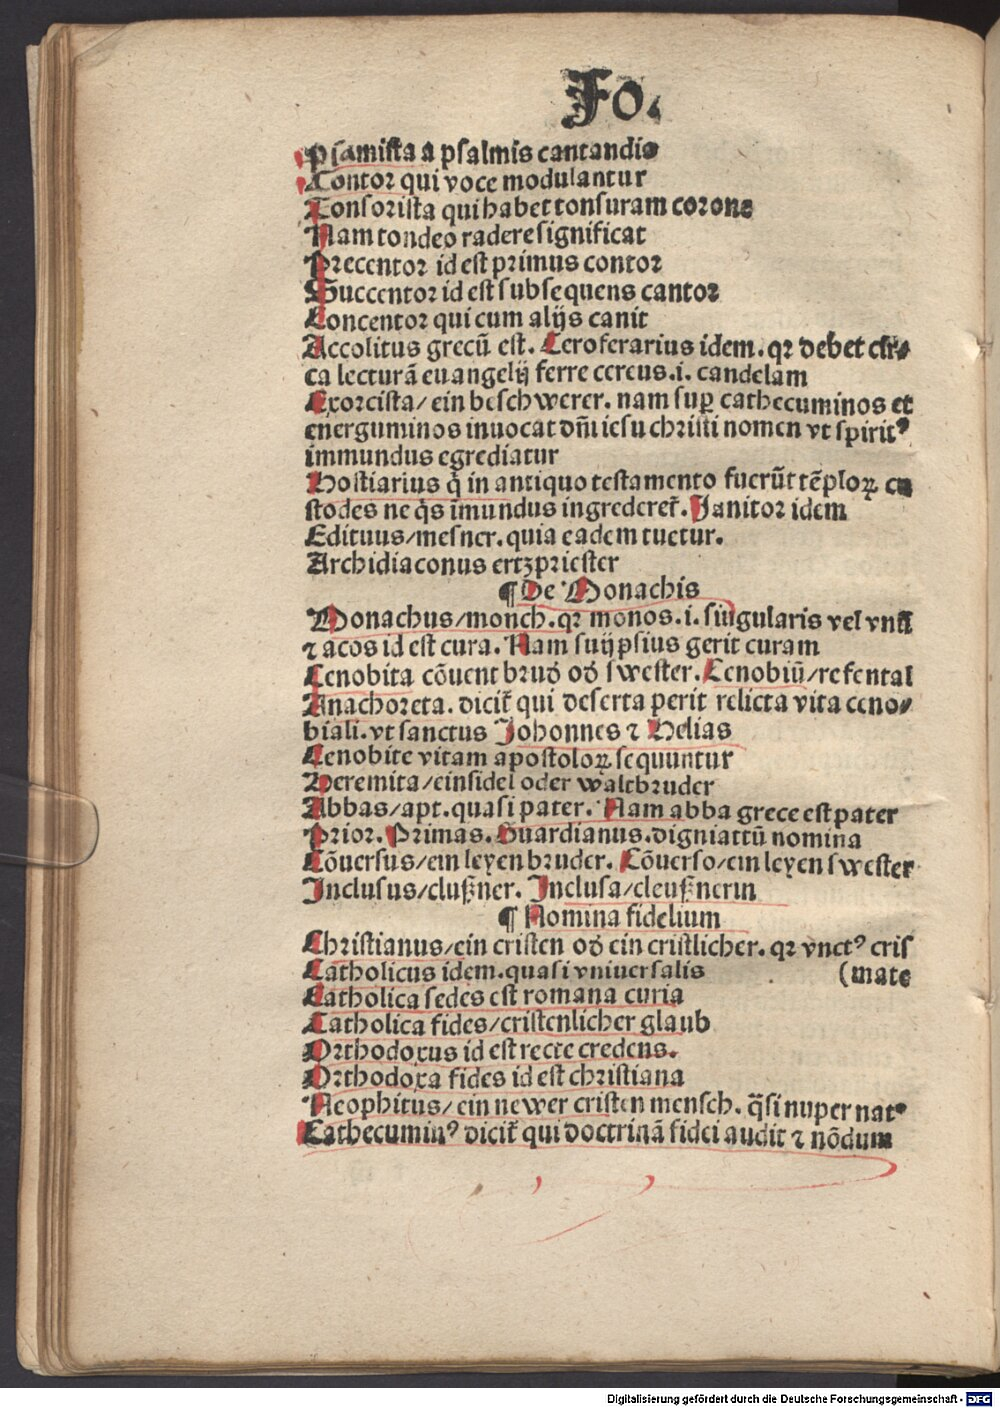 Fo.
Psamista a psalmis cantandis
Contor qui voce modulantur
Tonsorista qui habet tonsuram corone
Nam tondeo radere significat
Precentor id est primus contor
Succentor id est subsequens cantor
Concentor qui cum alijs canit
Accolitus grecū est. Ceroferarius idem. qr debet circa
ca lecturā euangelij ferre cereus .i. candelam
Exorcista/ ein beschwerer. nam suꝑ cathecuminos et
energuminos inuocat dn̄i iesu christi nomen vt spiritꝰ
immundus egrediatur
Hostiarius q̄ in antiquo testamento fuerūt tēploꝝ cu
stodes ne q̇s īmundus ingrederet̄. Janitor idem
Edituus/mesner. quia eadem tuetur.
Archidiaconus ertzpriester
¶ De Monachis
Monachus/monch. qr monos .i. singularis vel vnū
⁊ acos id est cura. Nam suijpsius gerit curam
Cenobita cōuent brud̛ od̛ swester. Cenobiū/refental
Anachoreta. dicit̄ qui deserta perit relicta vita ceno⸗
biali. vt sanctus Johonnes ⁊ Helias
Cenobite vitam apostoloꝝ sequuntur
Heremita/einsidel oder waltbruder
Abbas/apt. quasi pater. Nam abba grece est pater
Prior. Primas. Guardianus. digniattū nomina
Cōuersus/ein leyen bruder. Cōuerso/ein leyen swester
Inclusus/clußner. Inclusa/cleußnerin
¶ Nomina fidelium
Christianus/ein cristen od̛ ein cristlicher. qr vnctꝰ cris
Catholicus idem. quasi vniuersalis (mate
Catholica sedes est romana curia
Catholica fides/cristenlicher glaub
Orthodoxus id est recte credens.
Orthodoxa fides id est christiana
Neophitus/ein newer cristen mensch. q̄si nuper natꝰ
Cathecuminꝰ dicit̄ qui doctrinā fidei audit ⁊ nōdum
Digitalisierung gefördert durch die Deutsche Forschungsgemeinschaft - DFG